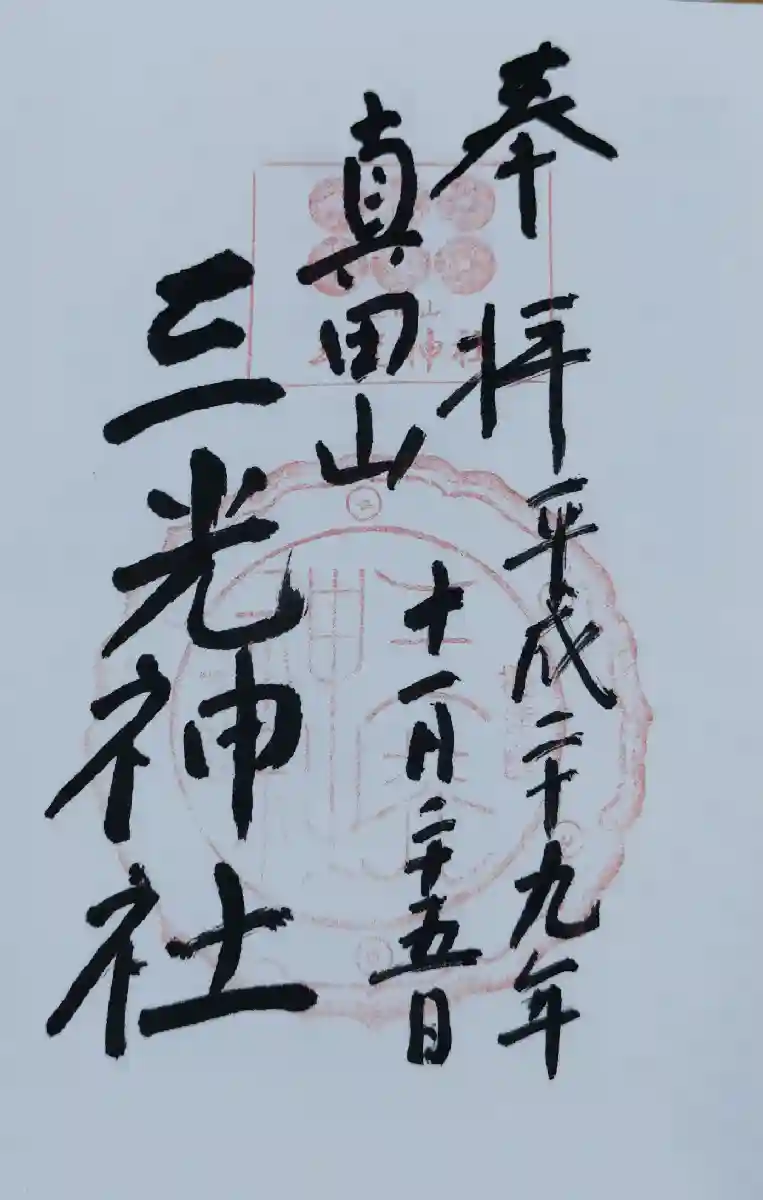 奉拝 平成二十九年
十一月二十五日
真田山
三光神社